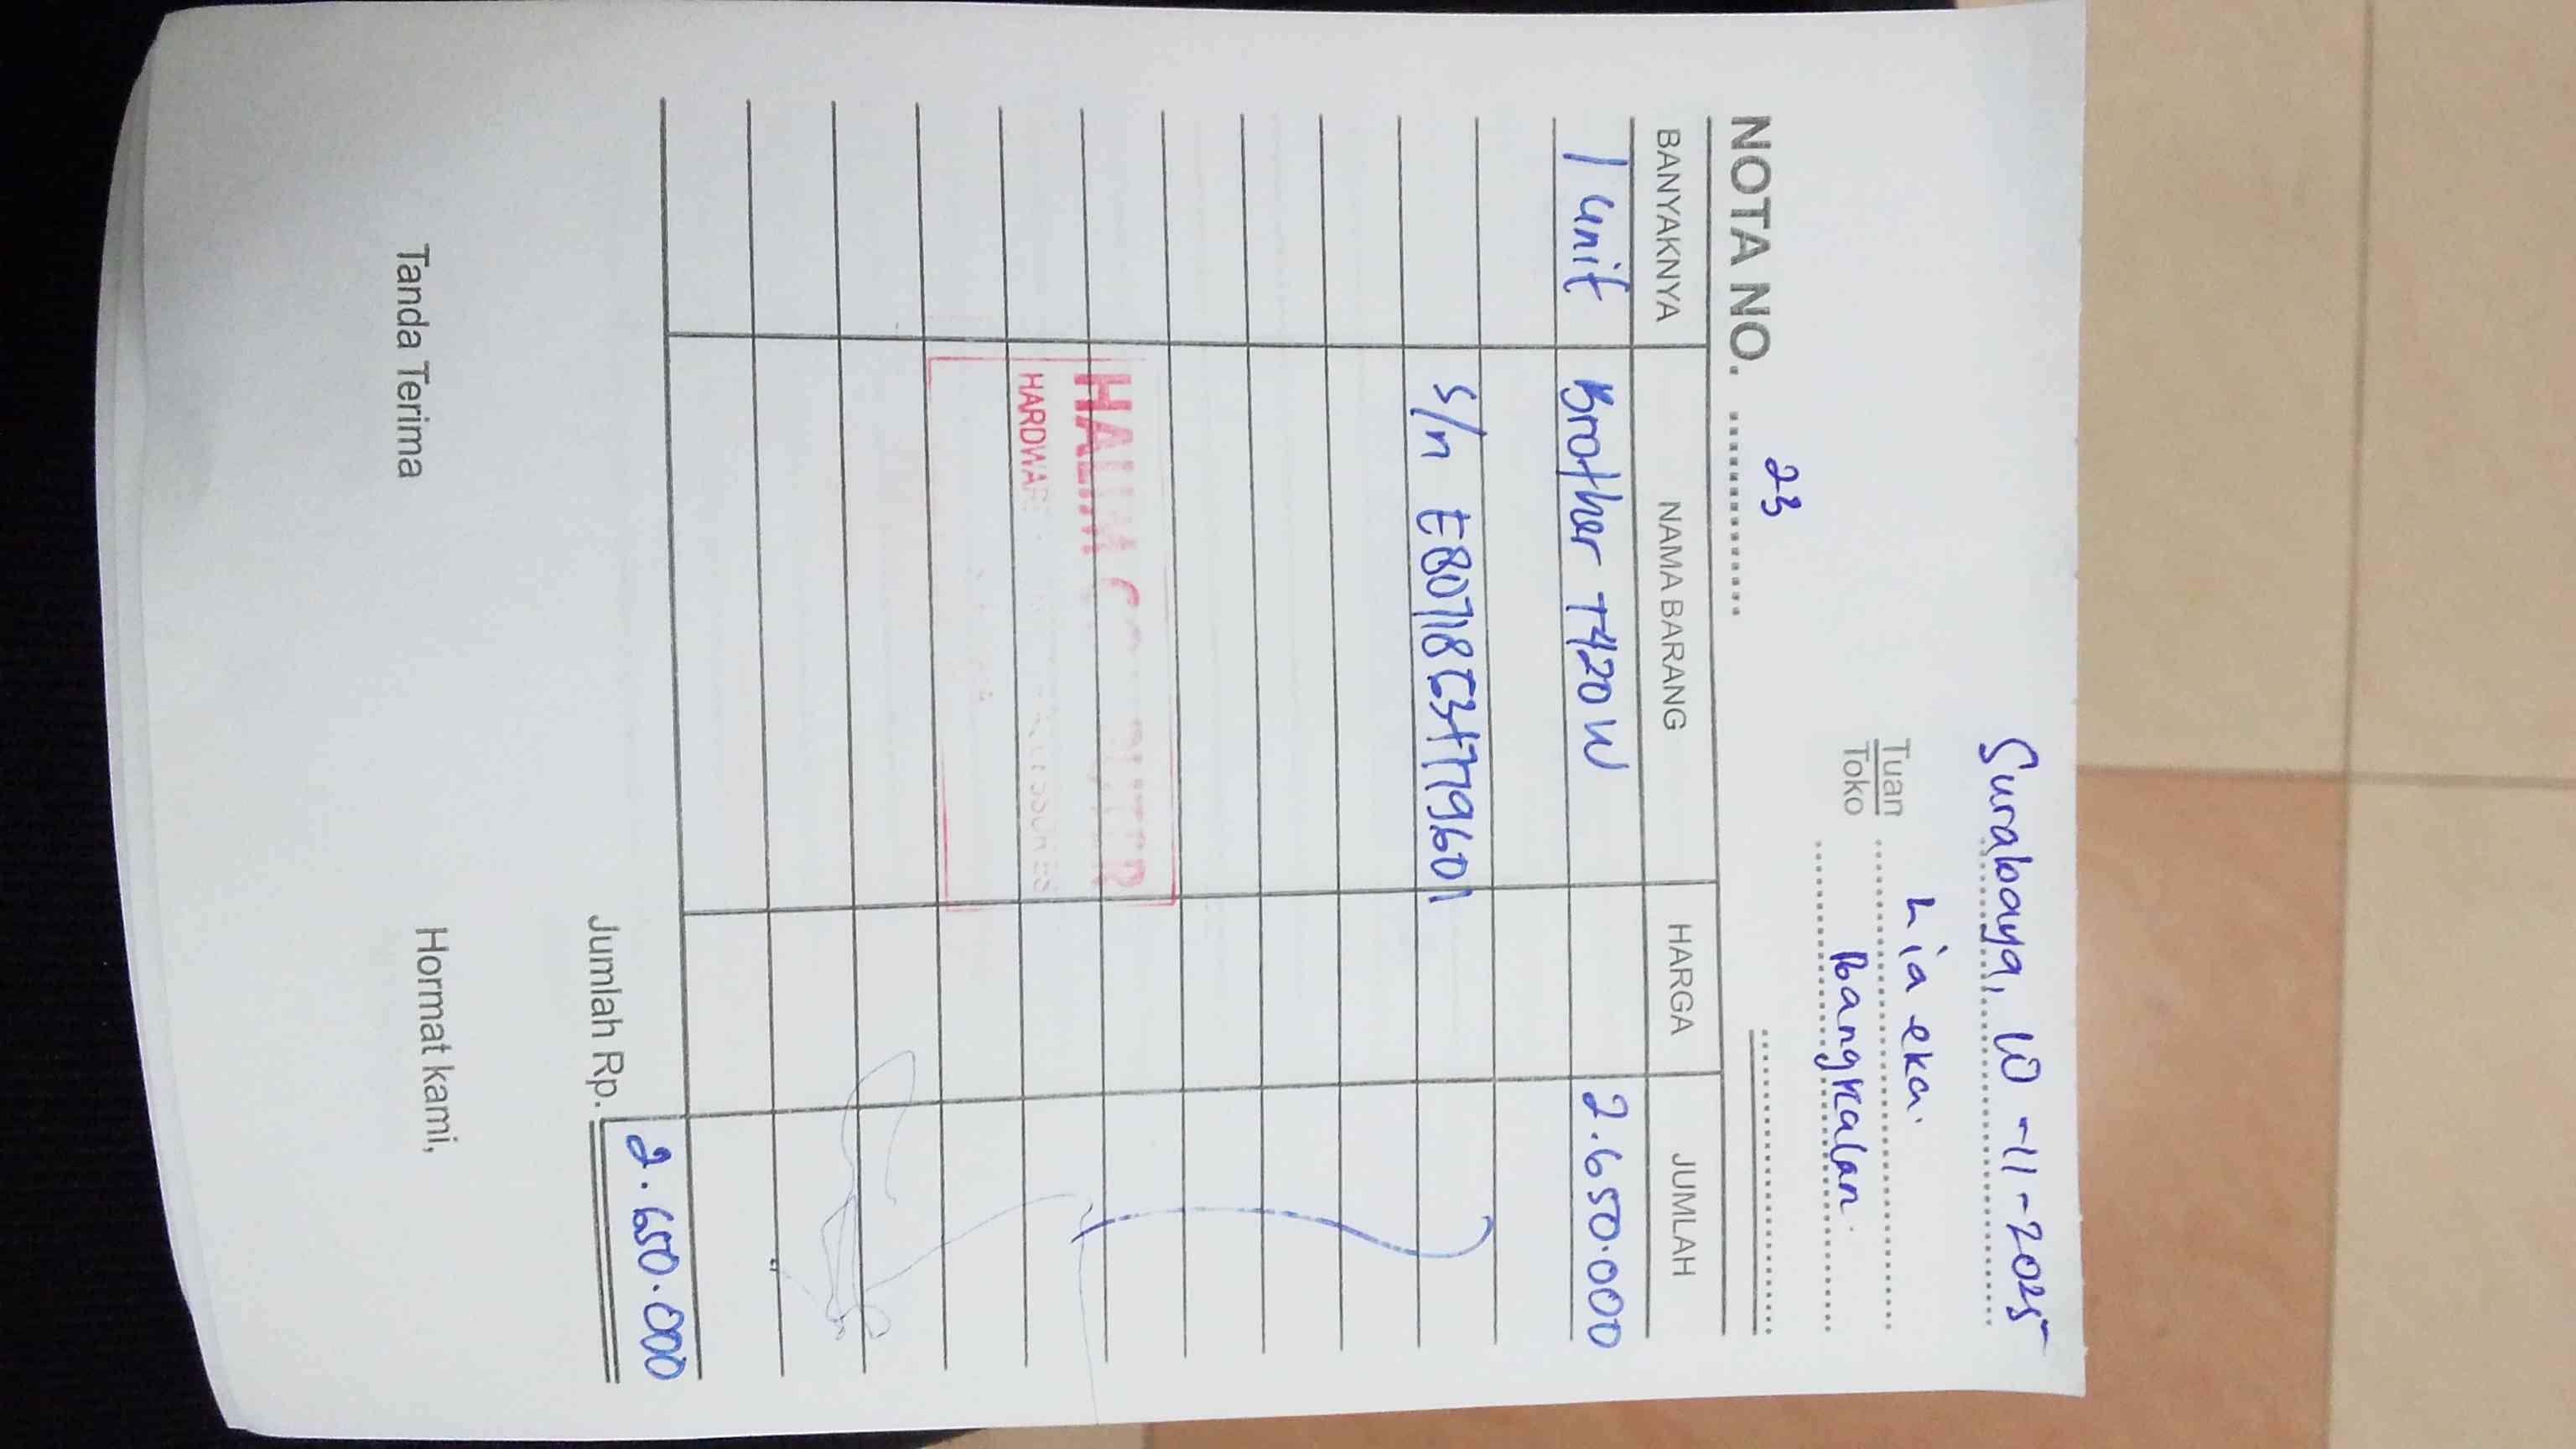 Surabaya, 10 - 11 - 2025
Tuan
Toko
Lia eka.
Bangkalan.
NOTA NO. 23
BANYAKNYA NAMA BARANG HARGA JUMLAH
1 unit Brother T420W 2.650.000
HALIM
HARDWARE
Jumlah Rp. 2.650.000
Tanda Terima Hormat kami,